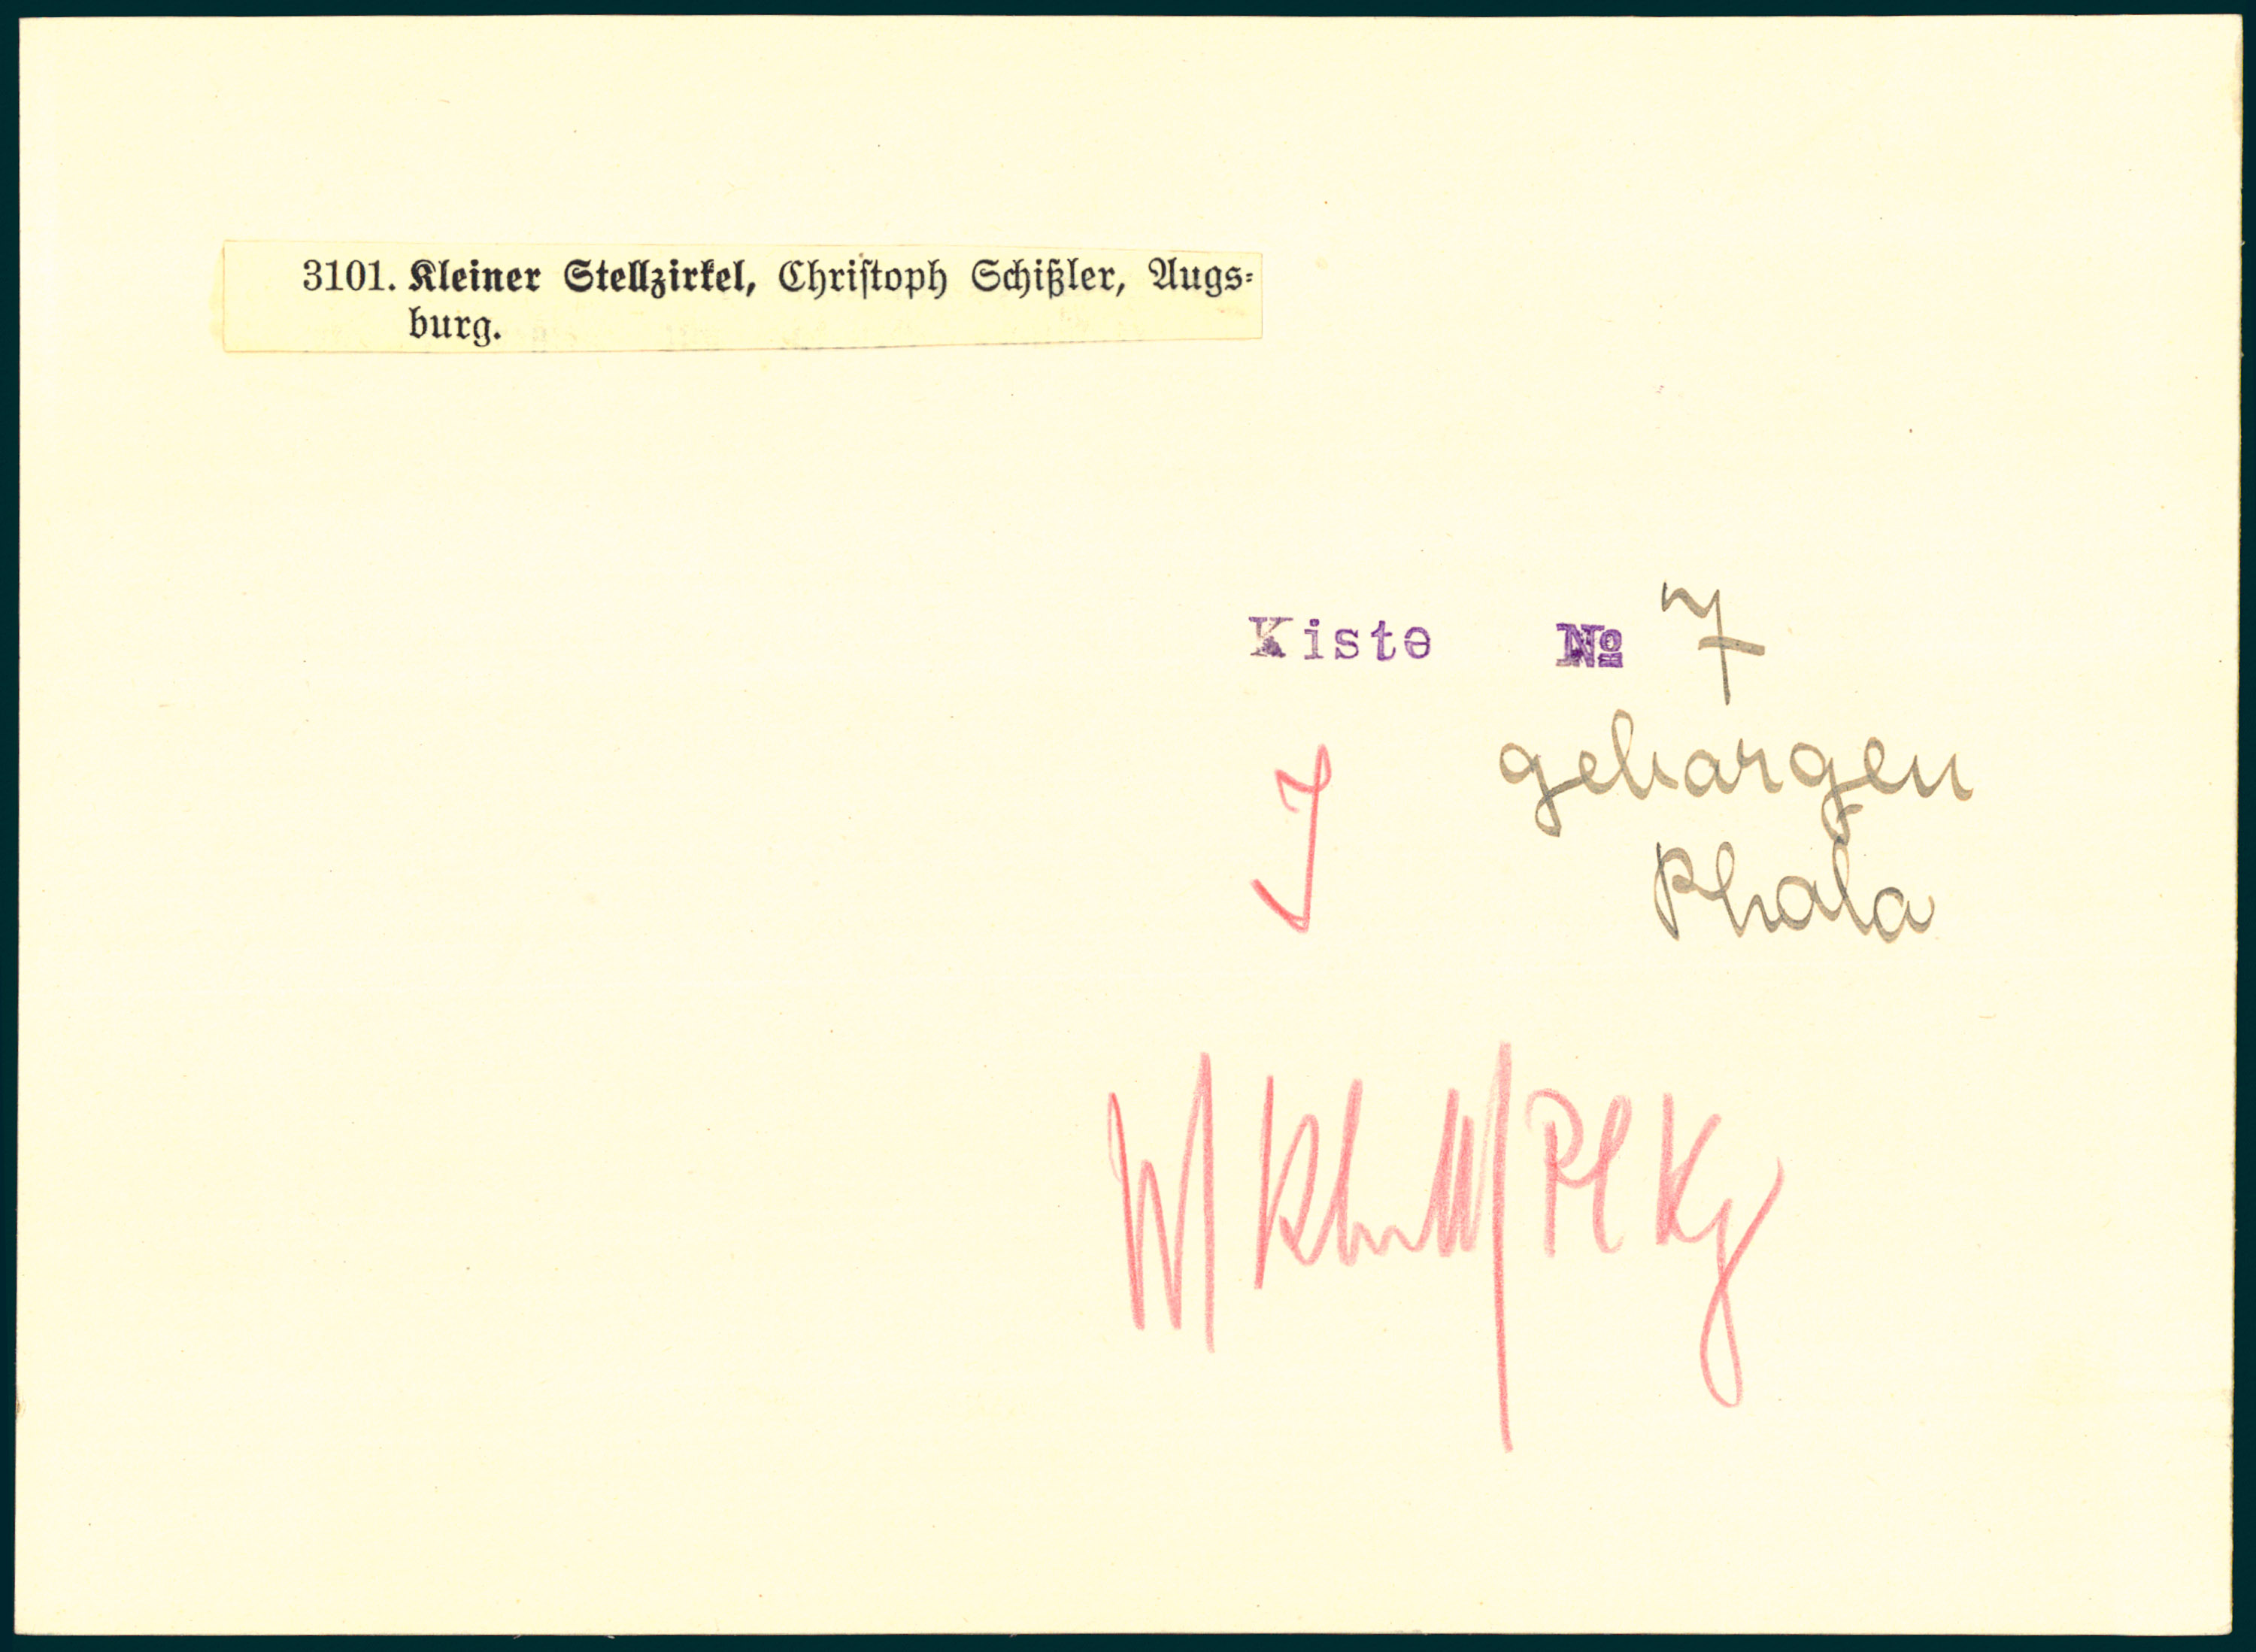 3101. Kleiner Stellzirkel, Christoph Schißler, Augs-
burg.
Kiste № 7
geborgen
Phala
J